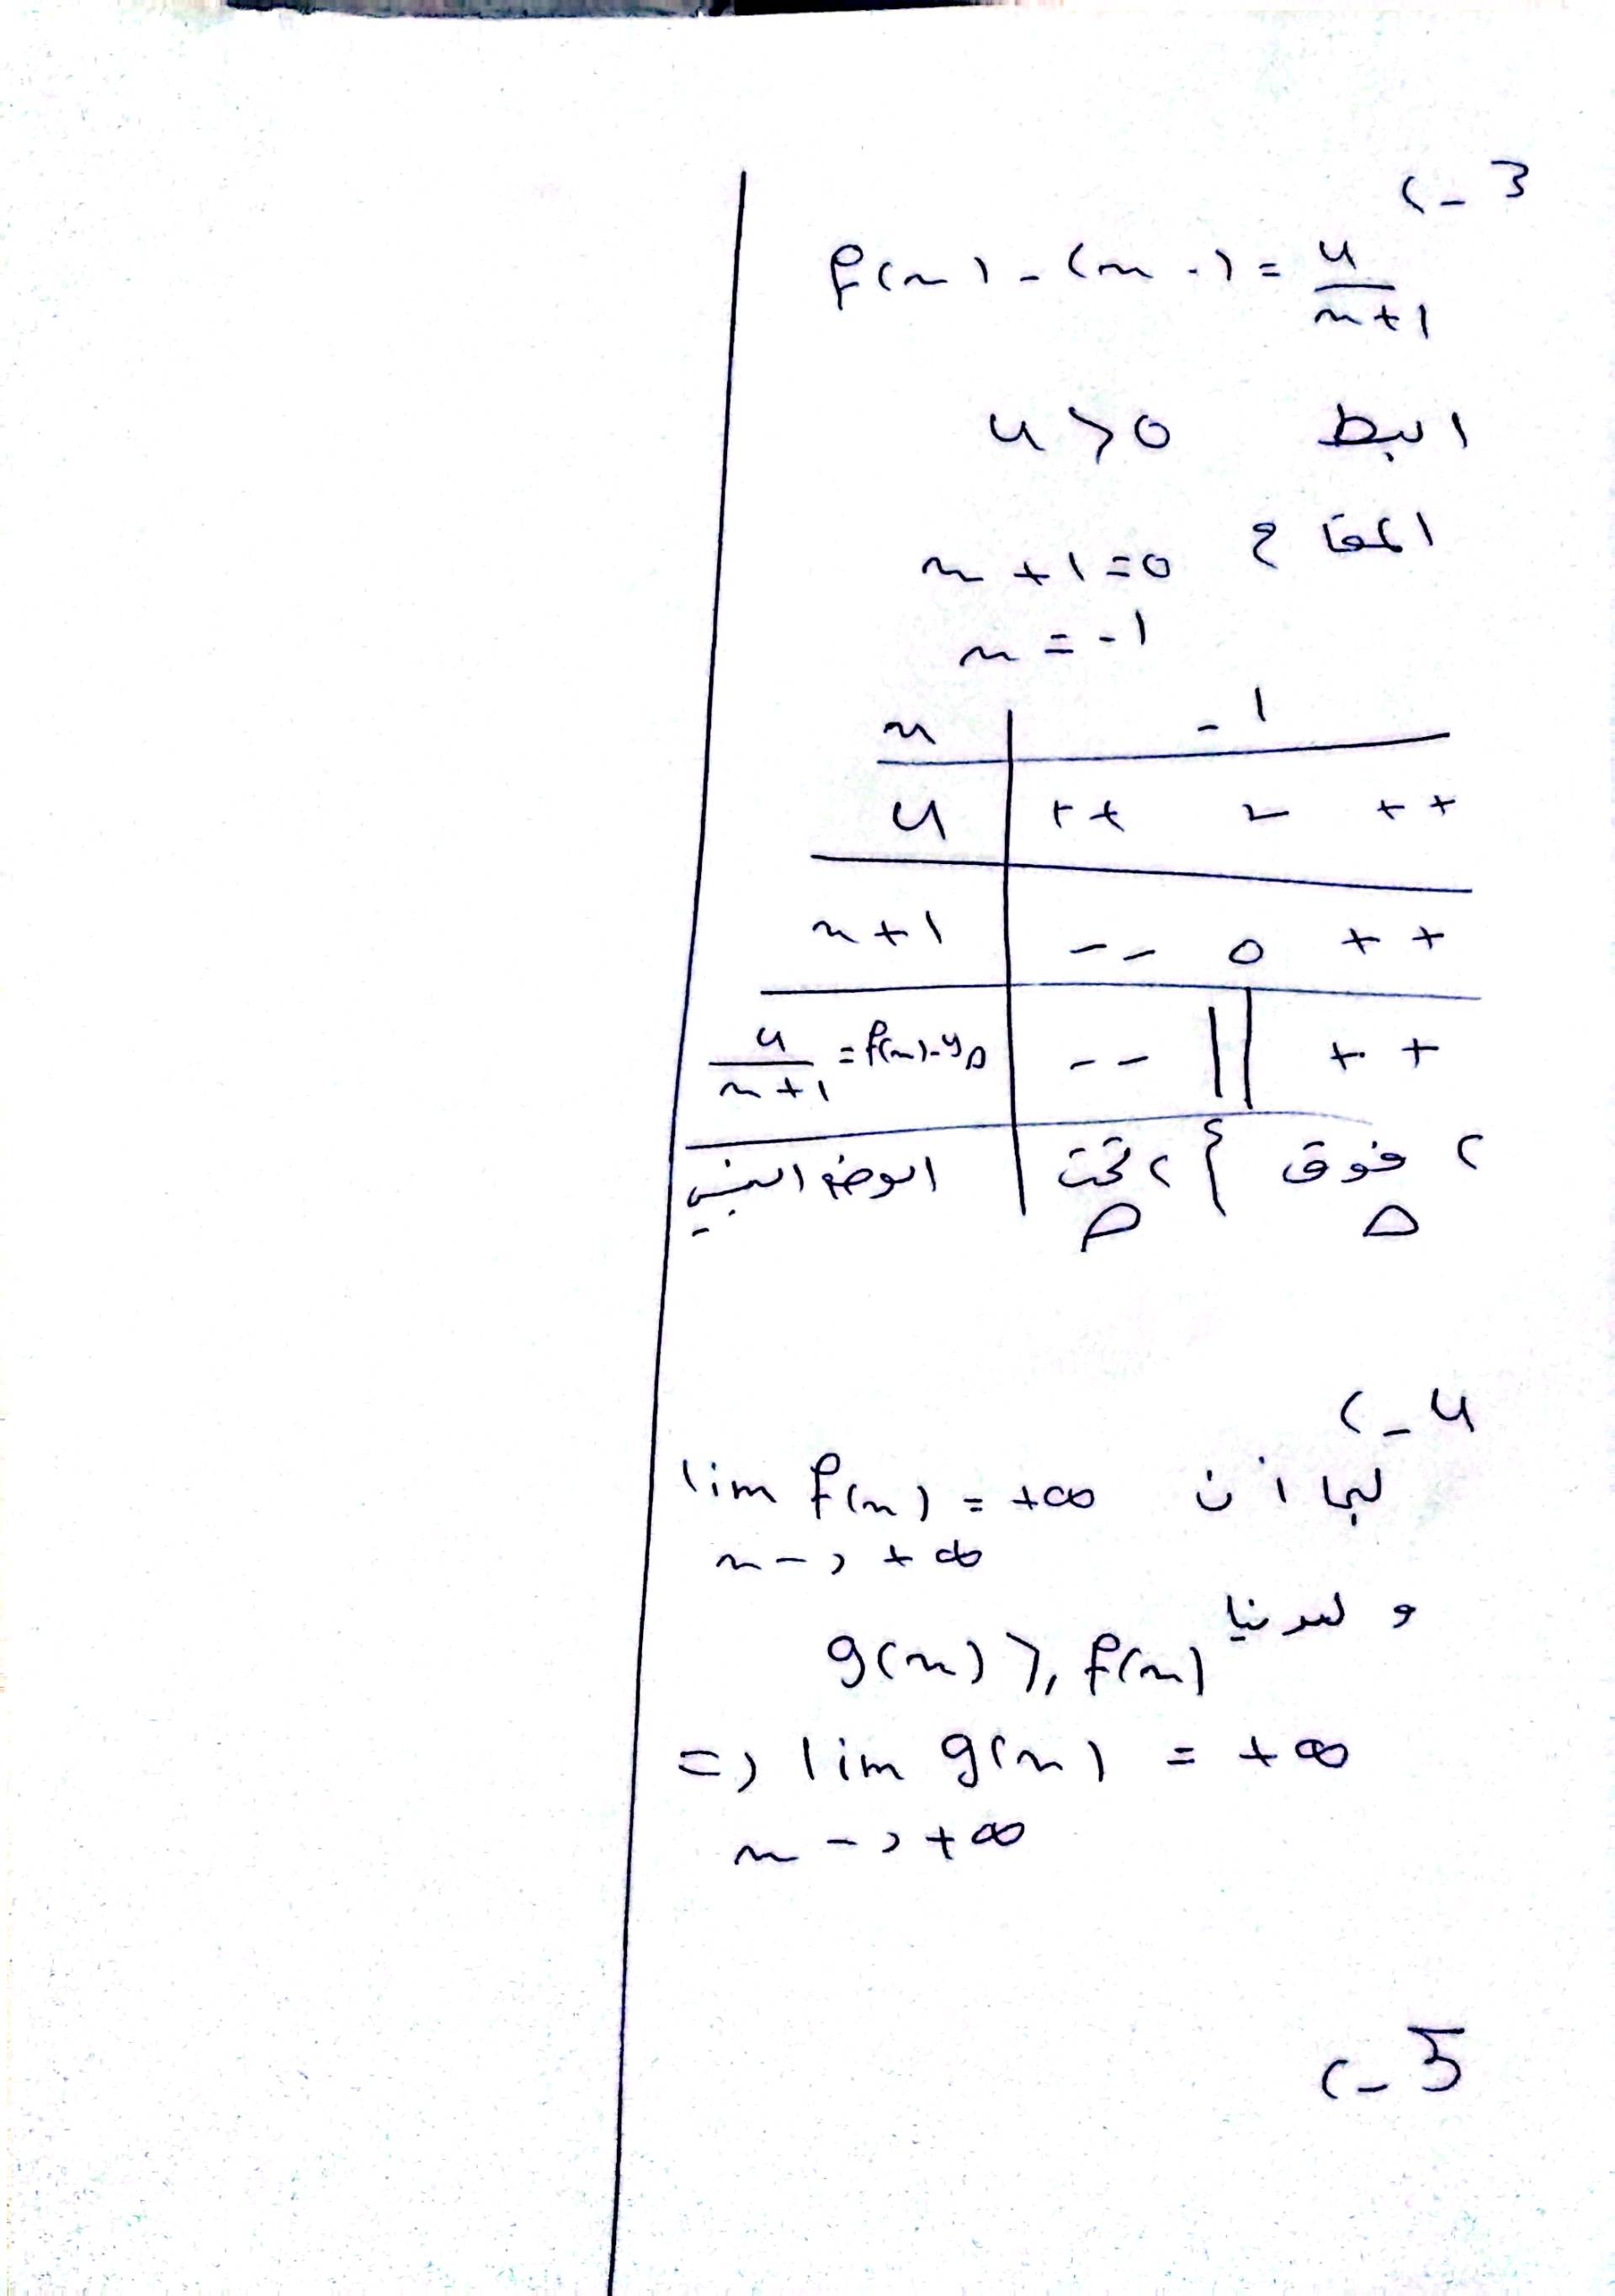 3 - ج
f(x) - (x - ) = 4/(x+1)
البسط 4 > 0
المقام x + 1 = 0
x = -1
x | -1
4 | ++ ++
x+1 | -- 0 ++
4/(x+1) = f(x) - yΔ | -- || ++
الوضع النسبي | تحت Δ } فوق Δ
4 - ج
بما أن lim f(x) = +∞
x -> +∞
و لدينا
g(x) ⩾ f(x)
=> lim g(x) = +∞
x -> +∞
5 - ج